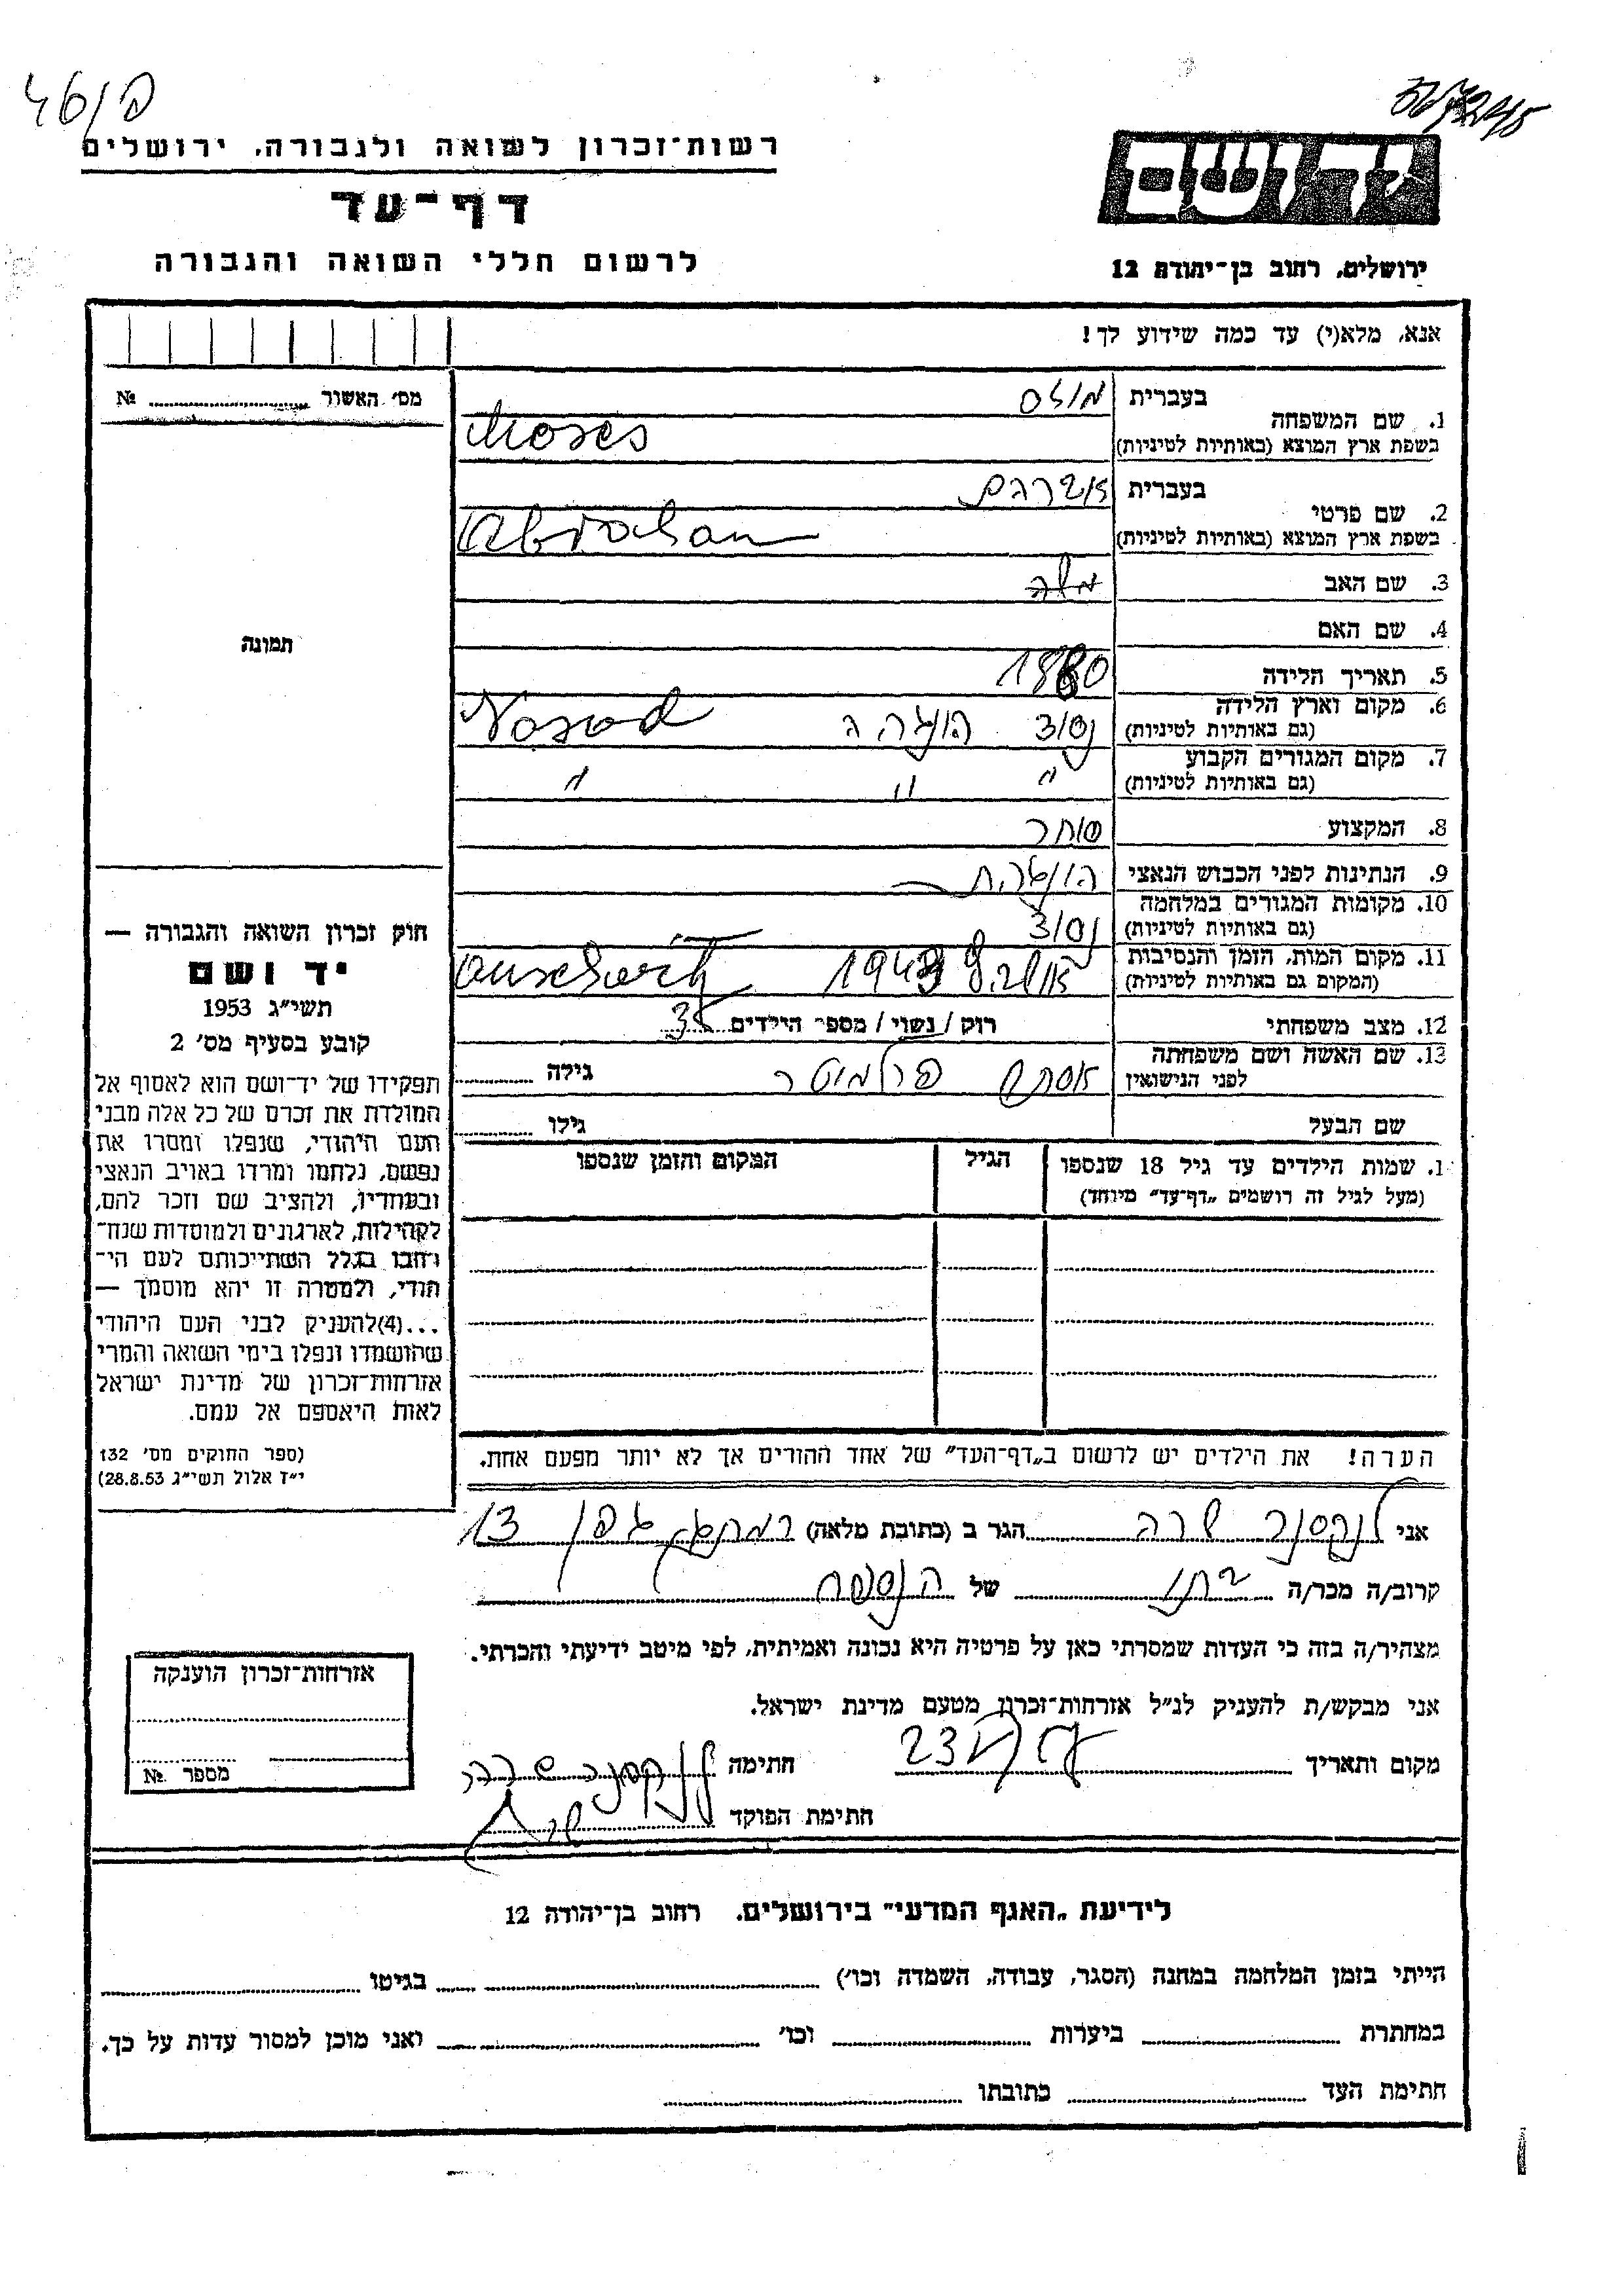 רשות־זכרון לשואה ולגבורה, ירושלים
דף־עד
לרשום חללי השואה והגבורה
יד ושם
ירושלים, רחוב בן־יהודה 12
אנא, מלא(י) עד כמה שידוע לך!
מס' האשור № ........
תמונה
1. שם המשפחה בעברית מוזס
בשפת ארץ המוצא (באותיות לטיניות) Moses
2. שם פרטי בעברית אברהם
בשפת ארץ המוצא (באותיות לטיניות) Abraham
3. שם האב משה
4. שם האם
5. תאריך הלידה 1880
6. מקום וארץ הלידה
(גם באותיות לטיניות) הונגריה Nosod
7. מקום המגורים הקבוע
(גם באותיות לטיניות) " " "
8. המקצוע סוחר
9. הנתינות לפני הכבוש הנאצי הונגרית
10. מקומות המגורים במלחמה
(גם באותיות לטיניות)
11. מקום המות, הזמן והנסיבות
(המקום גם באותיות לטיניות) 1943
12. מצב משפחתי רוק / נשוי / מספר הילדים
13. שם האשה ושם משפחתה
לפני הנישואין אסתר גילה
שם הבעל גילו
1. שמות הילדים עד גיל 18 שנספו
(מעל לגיל זה רושמים „דף־עד" מיוחד)
הגיל
המקום והזמן שנספו
הערה! את הילדים יש לרשום ב„דף־העד" של אחד ההורים אך לא יותר מפעם אחת.
חוק זכרון השואה והגבורה —
יד ושם
תשי"ג 1953
קובע בסעיף מס' 2
תפקידו של יד־ושם הוא לאסוף אל
המולדת את זכרם של כל אלה מבני
העם היהודי, שנפלו ומסרו את
נפשם, נלחמו ומרדו באויב הנאצי
ובעוזריו, ולהציב שם וזכר להם,
לקהילות, לארגונים ולמוסדות שנח־
רבו בגלל השתייכותם לעם הי־
הודי, ולמטרה זו יהא מוסמך —
...(4)להעניק לבני העם היהודי
שהושמדו ונפלו בימי השואה והמרי
אזרחות־זכרון של מדינת ישראל
לאות היאספם אל עמם.
(ספר החוקים מס' 132
י"ז אלול תשי"ג 28.8.53)
אני לנקסנר שרה הגר ב (כתובת מלאה) רמת־גן 13
קרוב/ה מכר/ה בתו של הנספה
מצהיר/ה בזה כי העדות שמסרתי כאן על פרטיה היא נכונה ואמיתית, לפי מיטב ידיעתי והכרתי.
אני מבקש/ת להעניק לנ"ל אזרחות־זכרון מטעם מדינת ישראל.
מקום ותאריך חתימה לנקסנר שרה
חתימת הפוקד
אזרחות־זכרון הוענקה
מספר №
לידיעת „האגף המדעי" בירושלים, רחוב בן־יהודה 12
הייתי בזמן המלחמה במחנה (הסגר, עבודה, השמדה וכו') בגיטו
במחתרת ביערות וכו' ואני מוכן למסור עדות על כך.
חתימת העד כתובתו